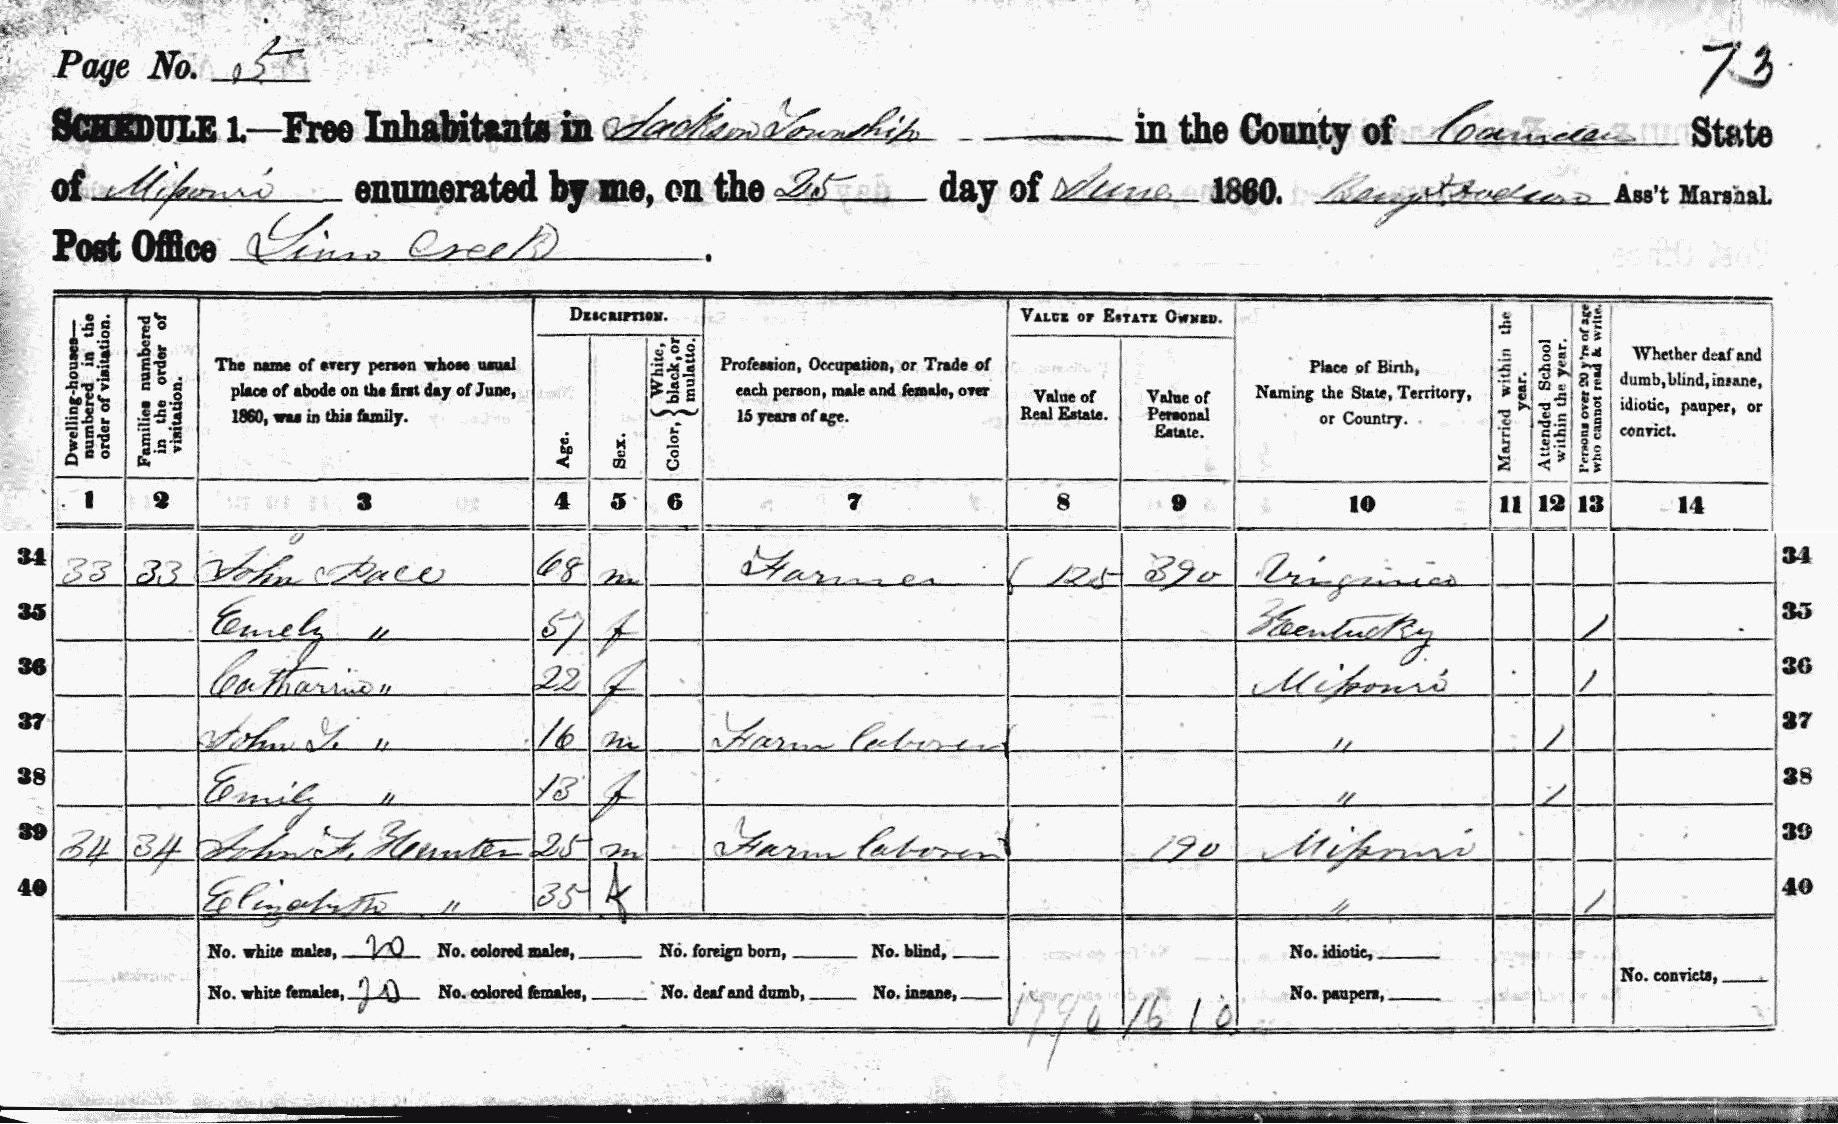 Page No. 5
73
SCHEDULE 1.—Free Inhabitants in Jackson Township in the County of Camden State
of Missouri enumerated by me, on the 25 day of June 1860. Ass't Marshal.
Post Office Linn Creek.
DESCRIPTION. VALUE OF ESTATE OWNED.
Dwelling-houses—numbered in the order of visitation.
Families numbered in the order of visitation.
The name of every person whose usual place of abode on the first day of June, 1860, was in this family.
Age.
Sex.
Color, { White, black, or mulatto.
Profession, Occupation, or Trade of each person, male and female, over 15 years of age.
Value of Real Estate.
Value of Personal Estate.
Place of Birth, Naming the State, Territory, or Country.
Married within the year.
Attended School within the year.
Persons over 20 y'rs of age who cannot read & write.
Whether deaf and dumb, blind, insane, idiotic, pauper, or convict.
1 2 3 4 5 6 7 8 9 10 11 12 13 14
34 33 33 John Pace 68 m Farmer 125 390 Virginia 34
35 Emely " 57 f Kentucky 1 35
36 Catharine " 22 f Missouri 1 36
37 John T. " 16 m Farm laborer " 1 37
38 Emily " 13 f " 1 38
39 34 34 John F. Hunter 25 m Farm laborer 190 Missouri 39
40 Elizabeth " 35 f " 1 40
No. white males, 20 No. colored males, No. foreign born, No. blind, No. idiotic,
No. white females, 20 No. colored females, No. deaf and dumb, No. insane, 1610 No. paupers, No. convicts,